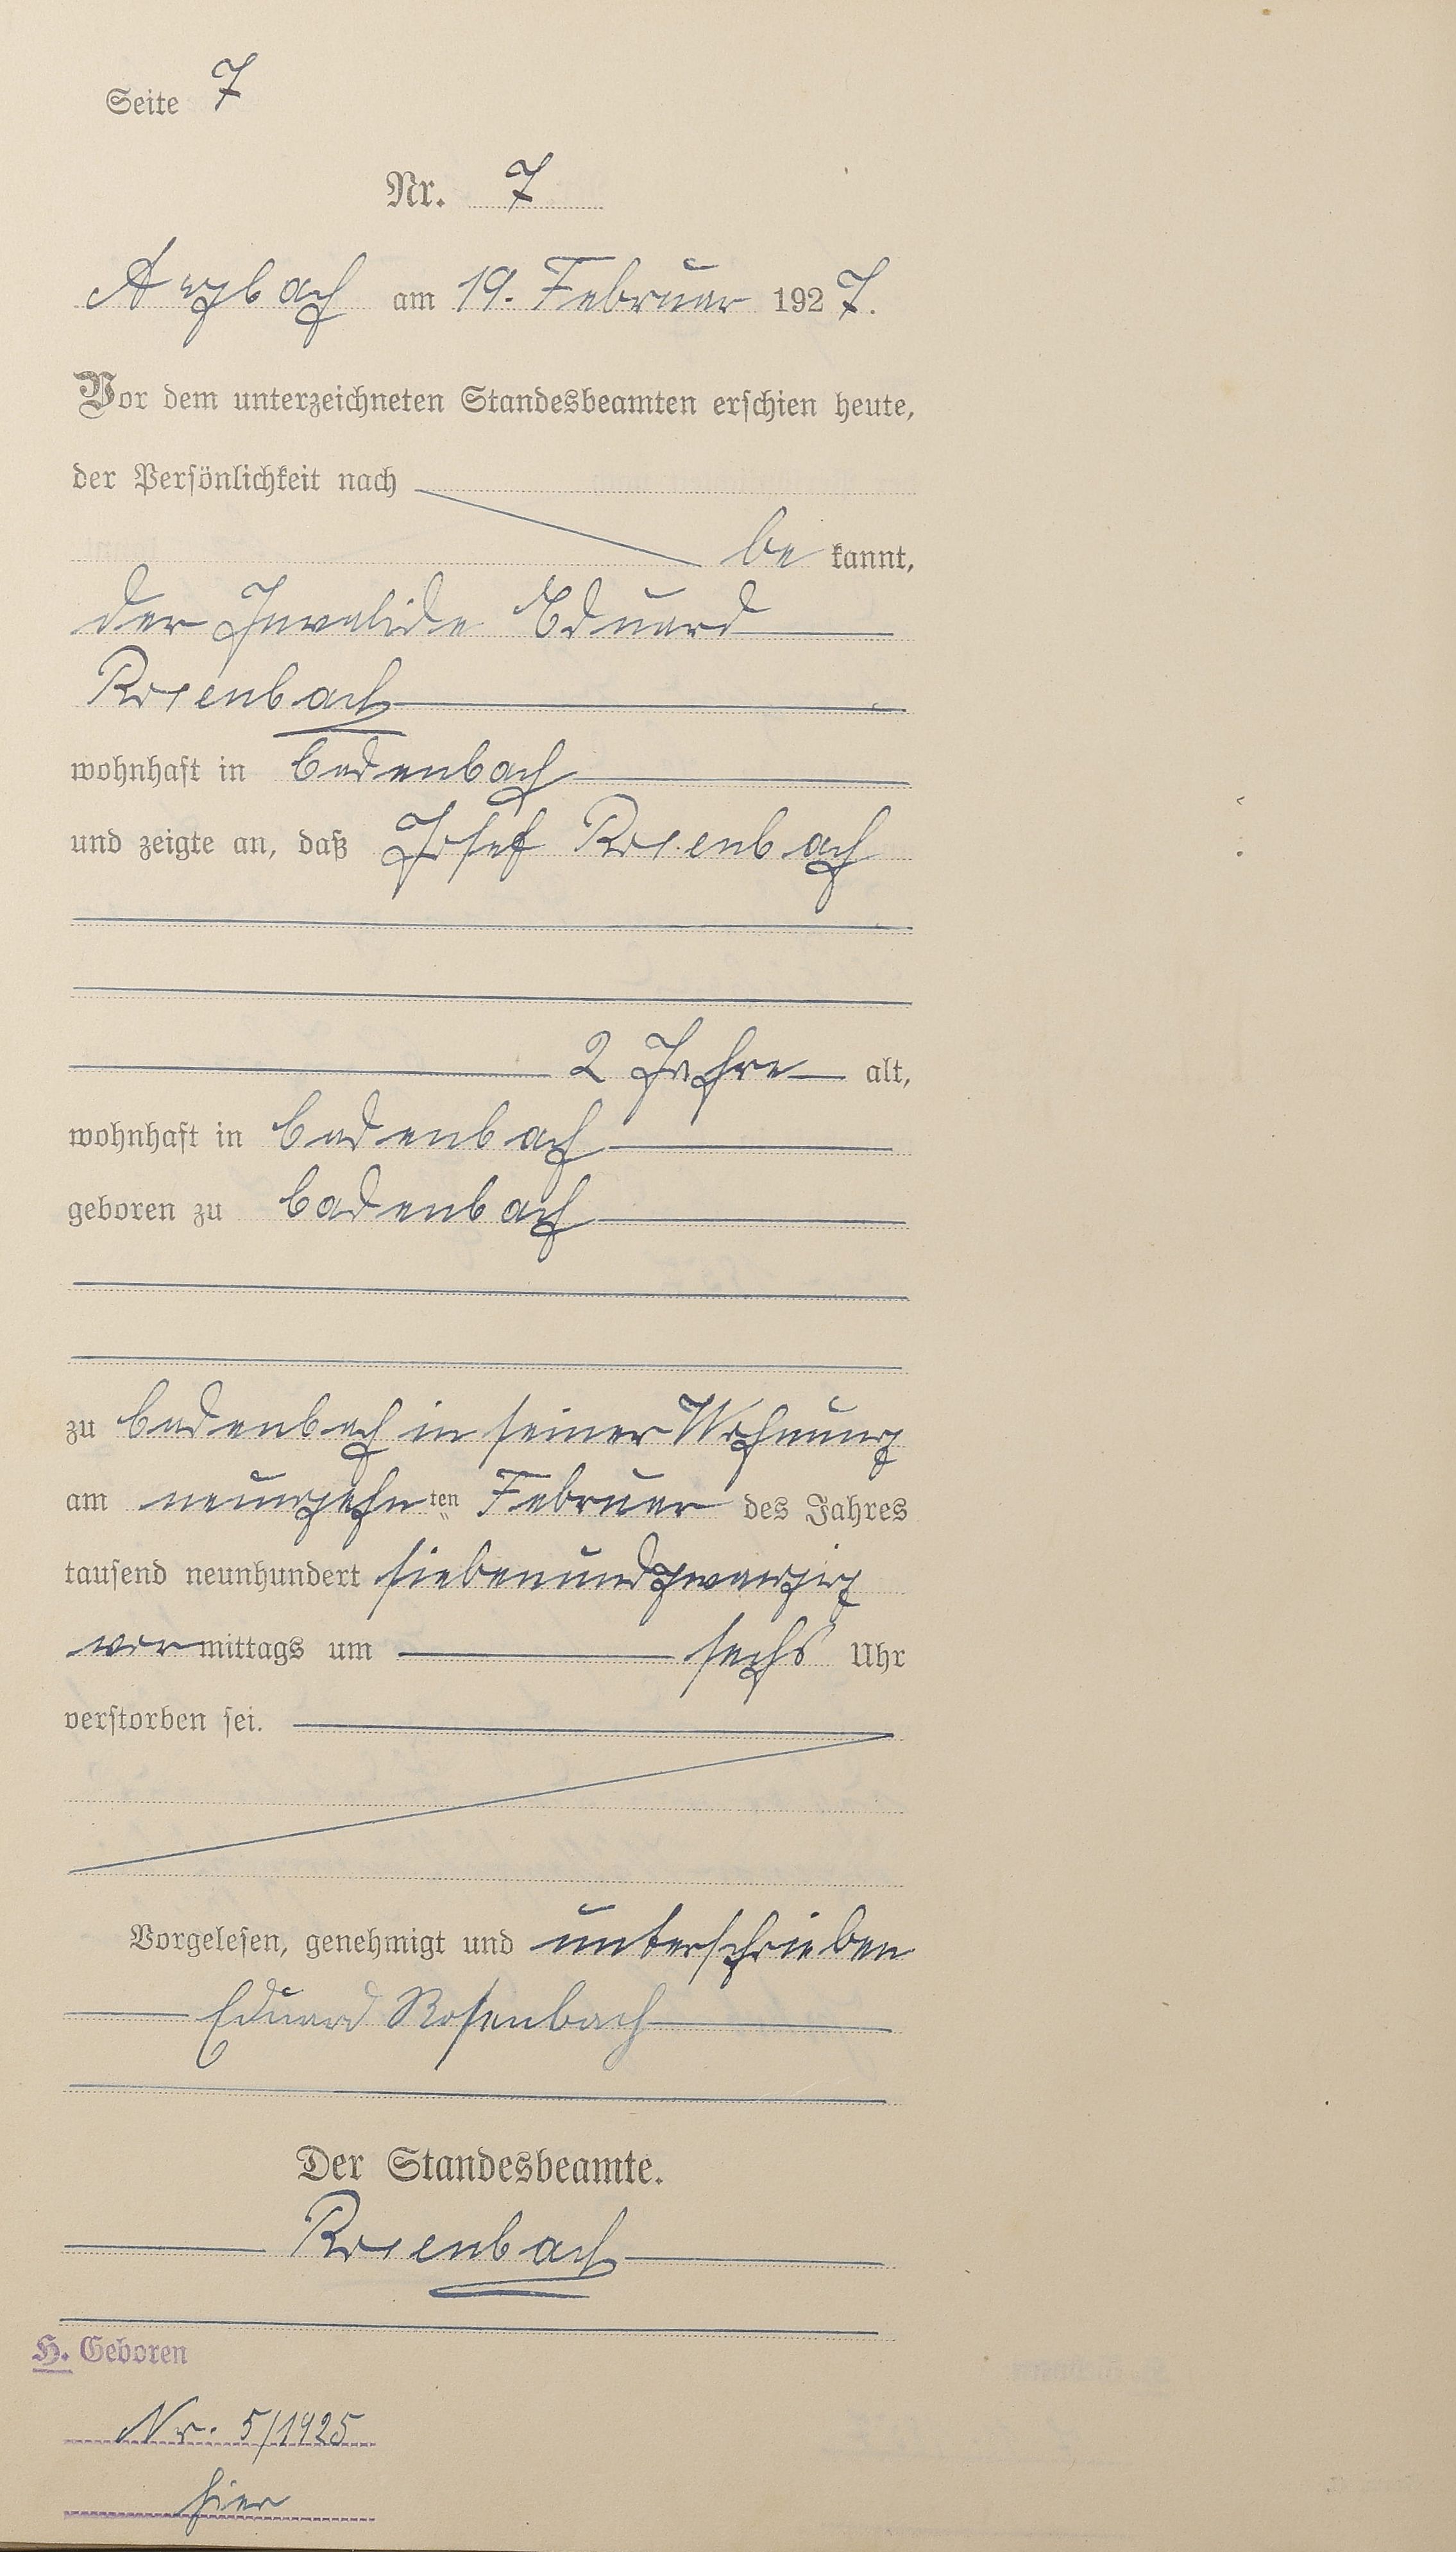 Seite 7
Nr. 7
Arzbach am 19. Februar 1927.
Vor dem unterzeichneten Standesbeamten erschien heute,
der Persönlichkeit nach
be kannt,
der Invalide Eduard
Rosenbach
wohnhaft in Cadenbach
und zeigte an, daß Josef Rosenbach
2 Jahre alt,
wohnhaft in Cadenbach
geboren zu Cadenbach
zu Cadenbach in seiner Wohnung
am neunzehnten Februar des Jahres
tausend neunhundert siebenundzwanzig
vormittags um sechs Uhr
verstorben sei.
Vorgelesen, genehmigt und unterschrieben
Eduard Rosenbach
Der Standesbeamte.
Rosenbach
H. Geboren
Nr. 5/1925
hier